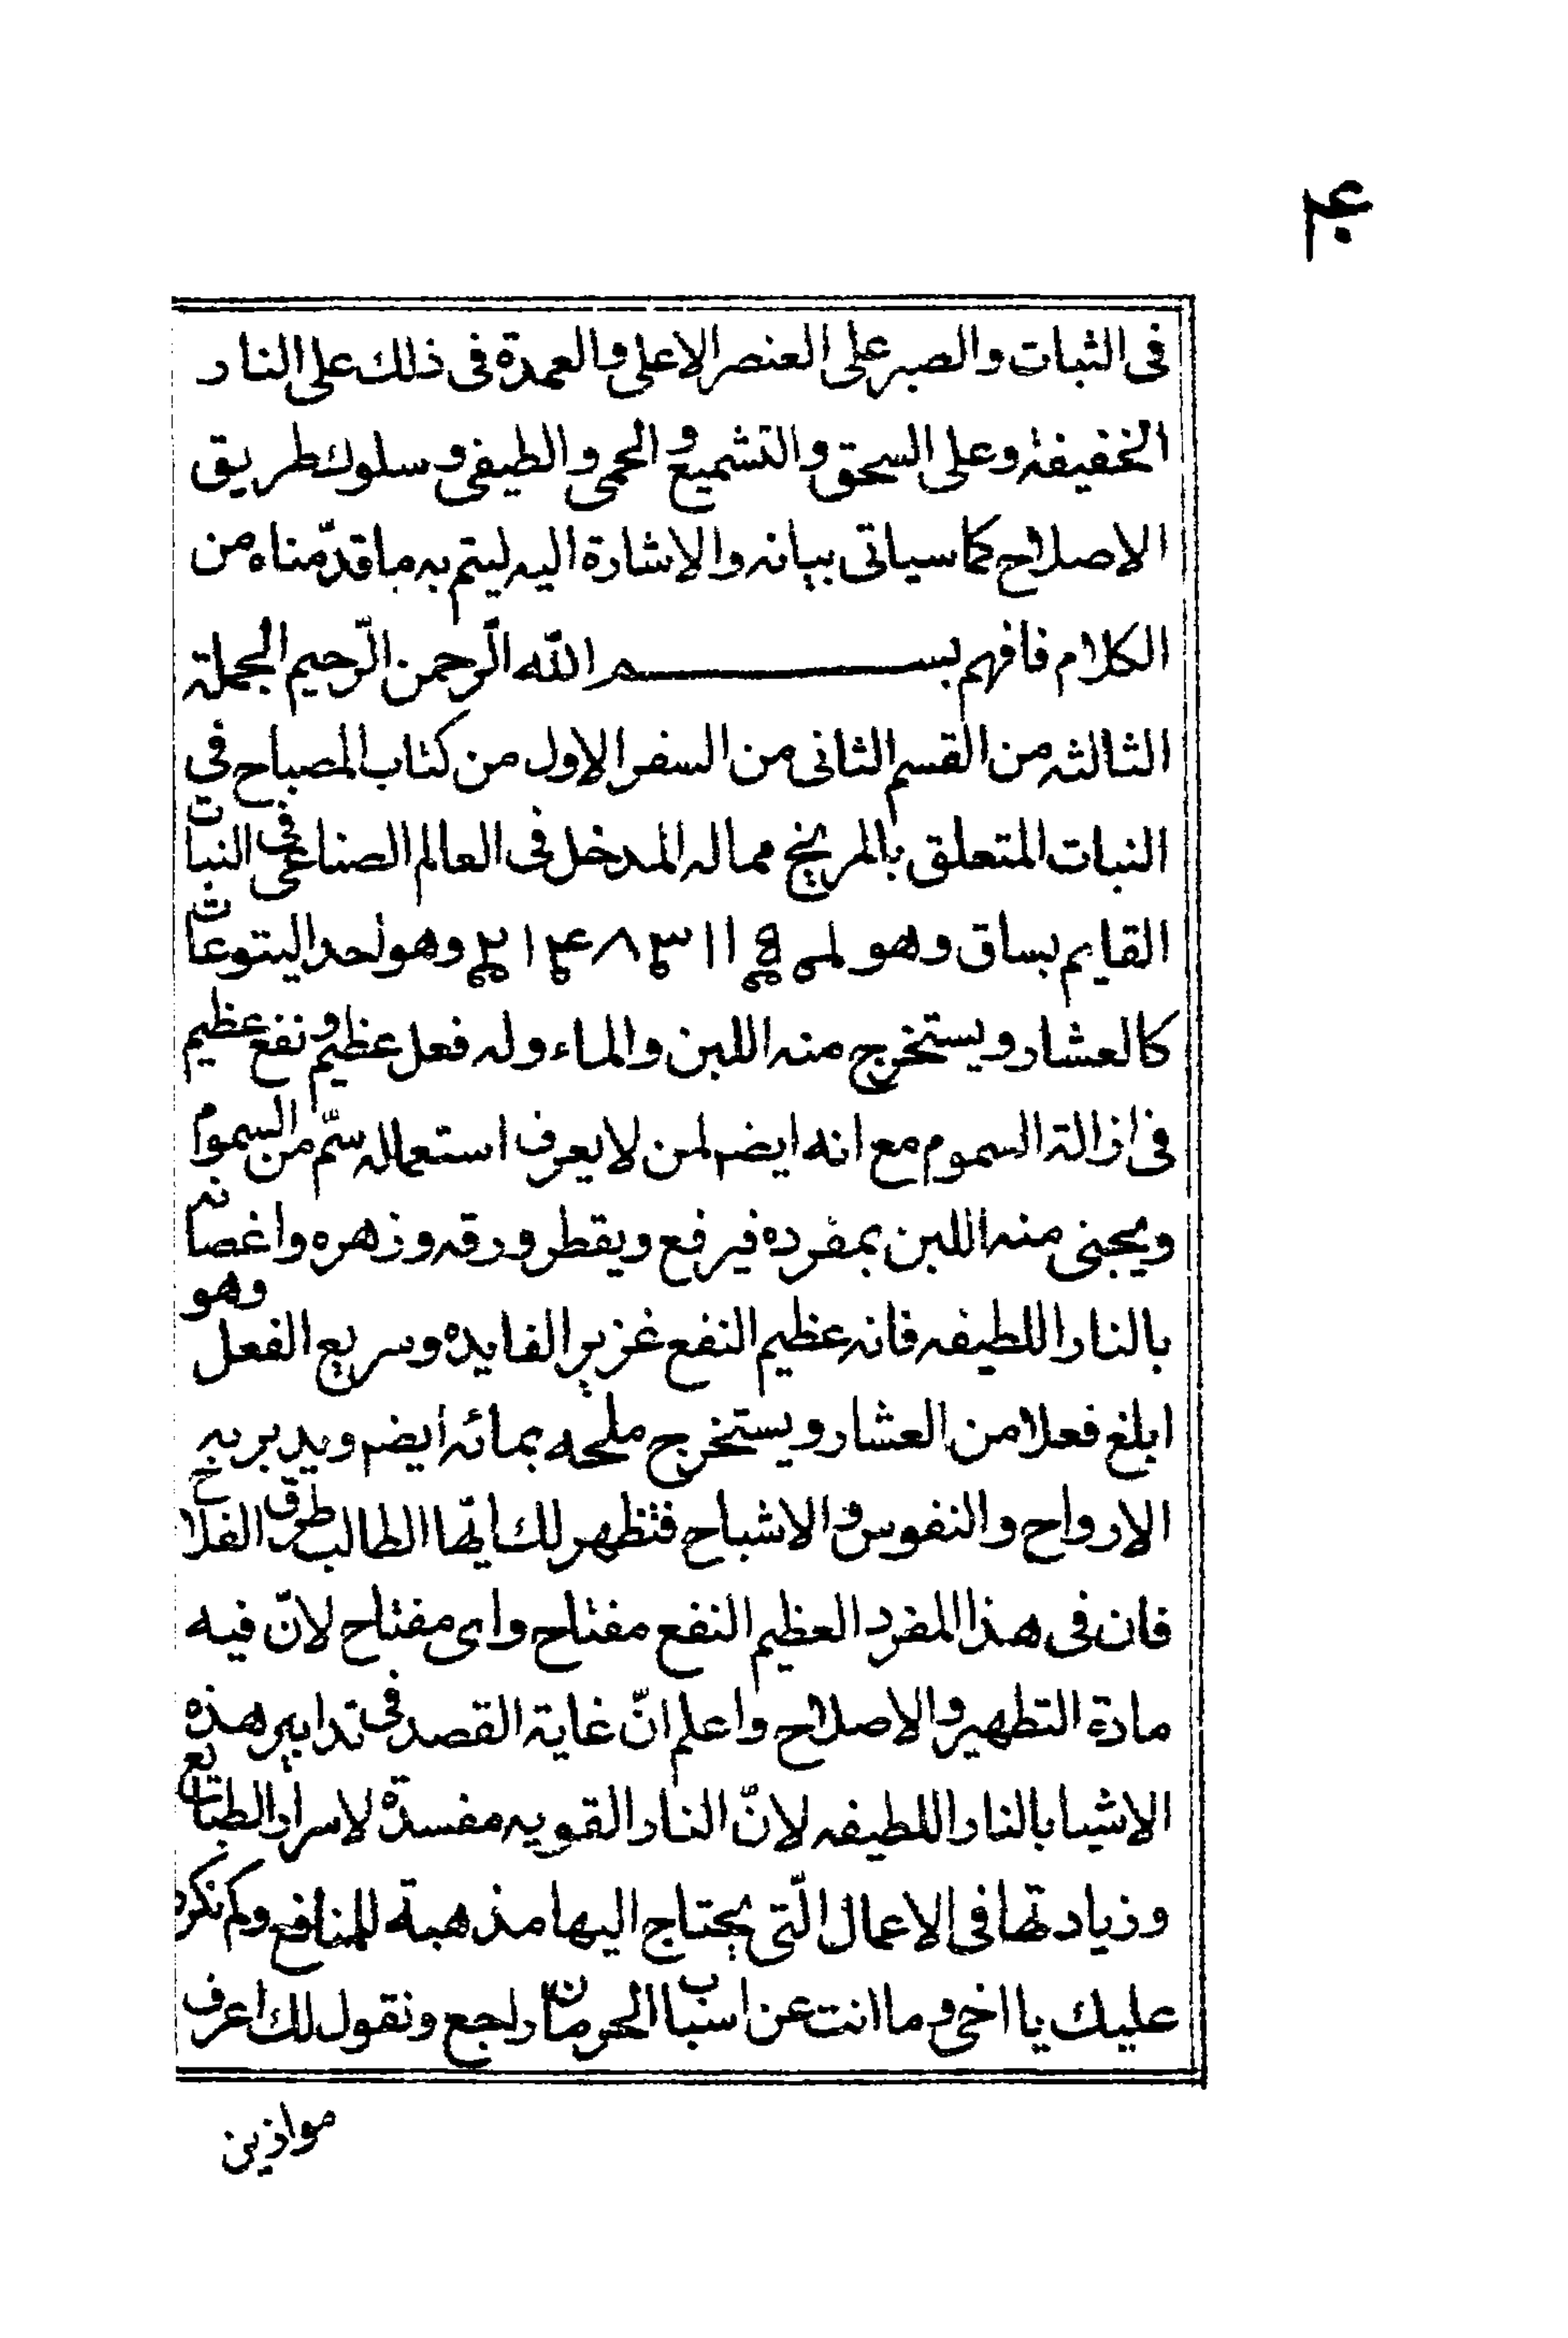 ۴۰
فى الثبات والصبر على العنصر الاعلى والعمدة فى ذلك على النار
الخفيفة وعلى السحق والتشميع والحمى والطيفى وسلوك طريق
الاصلاح كما سياتى بيانه والاشارة اليه ليتم به ما قدّمناه من
الكلام فافهم بســـــم الله الرّحمن الرّحيم الجملة
الثالثه من القسم الثانى من السفر الاول من كتاب المصباح فى
النبات المتعلق بالمريخ مما له المدخل فى العالم الصناعى فى النبات
القايم بساق وهو وهو احد اليتوعات
كالعشار ويستخرج منه اللبن والماء وله فعل عظيم ونفع عظيم
فى ازالة السموم مع انه ايضم لمن لا يعرف استعماله سمّ من السموم
ويجنى منه اللبن بمفرده فيرفع ويقطر ورقه وزهره واغصانه
بالنار اللطيفه فانه عظيم النفع غزير الفايده وسريع الفعل وهو
ابلغ فعلا من العشار ويستخرج ملحه بمائه ايضم ويدبر به
الارواح والنفوس والاشباح فتظهر لك ايّها الطالب طرق الفلاح
فان فى هذا المفرد العظيم النفع مفتاح واى مفتاح لانّ فيه
مادة التطهير والاصلاح واعلم انّ غاية القصد فى تدابير هذه
الاشيا بالنار اللطيفه لانّ النار القويه مفسدة لاسرار الطبائع
وزيادتها فى الاعمال الّتى يحتاج اليها مذهبة للمنافع وكم نكرر
عليك يا اخى وما انت عن اسباب الحرمان راجع ونقول لك اعرف
موازين